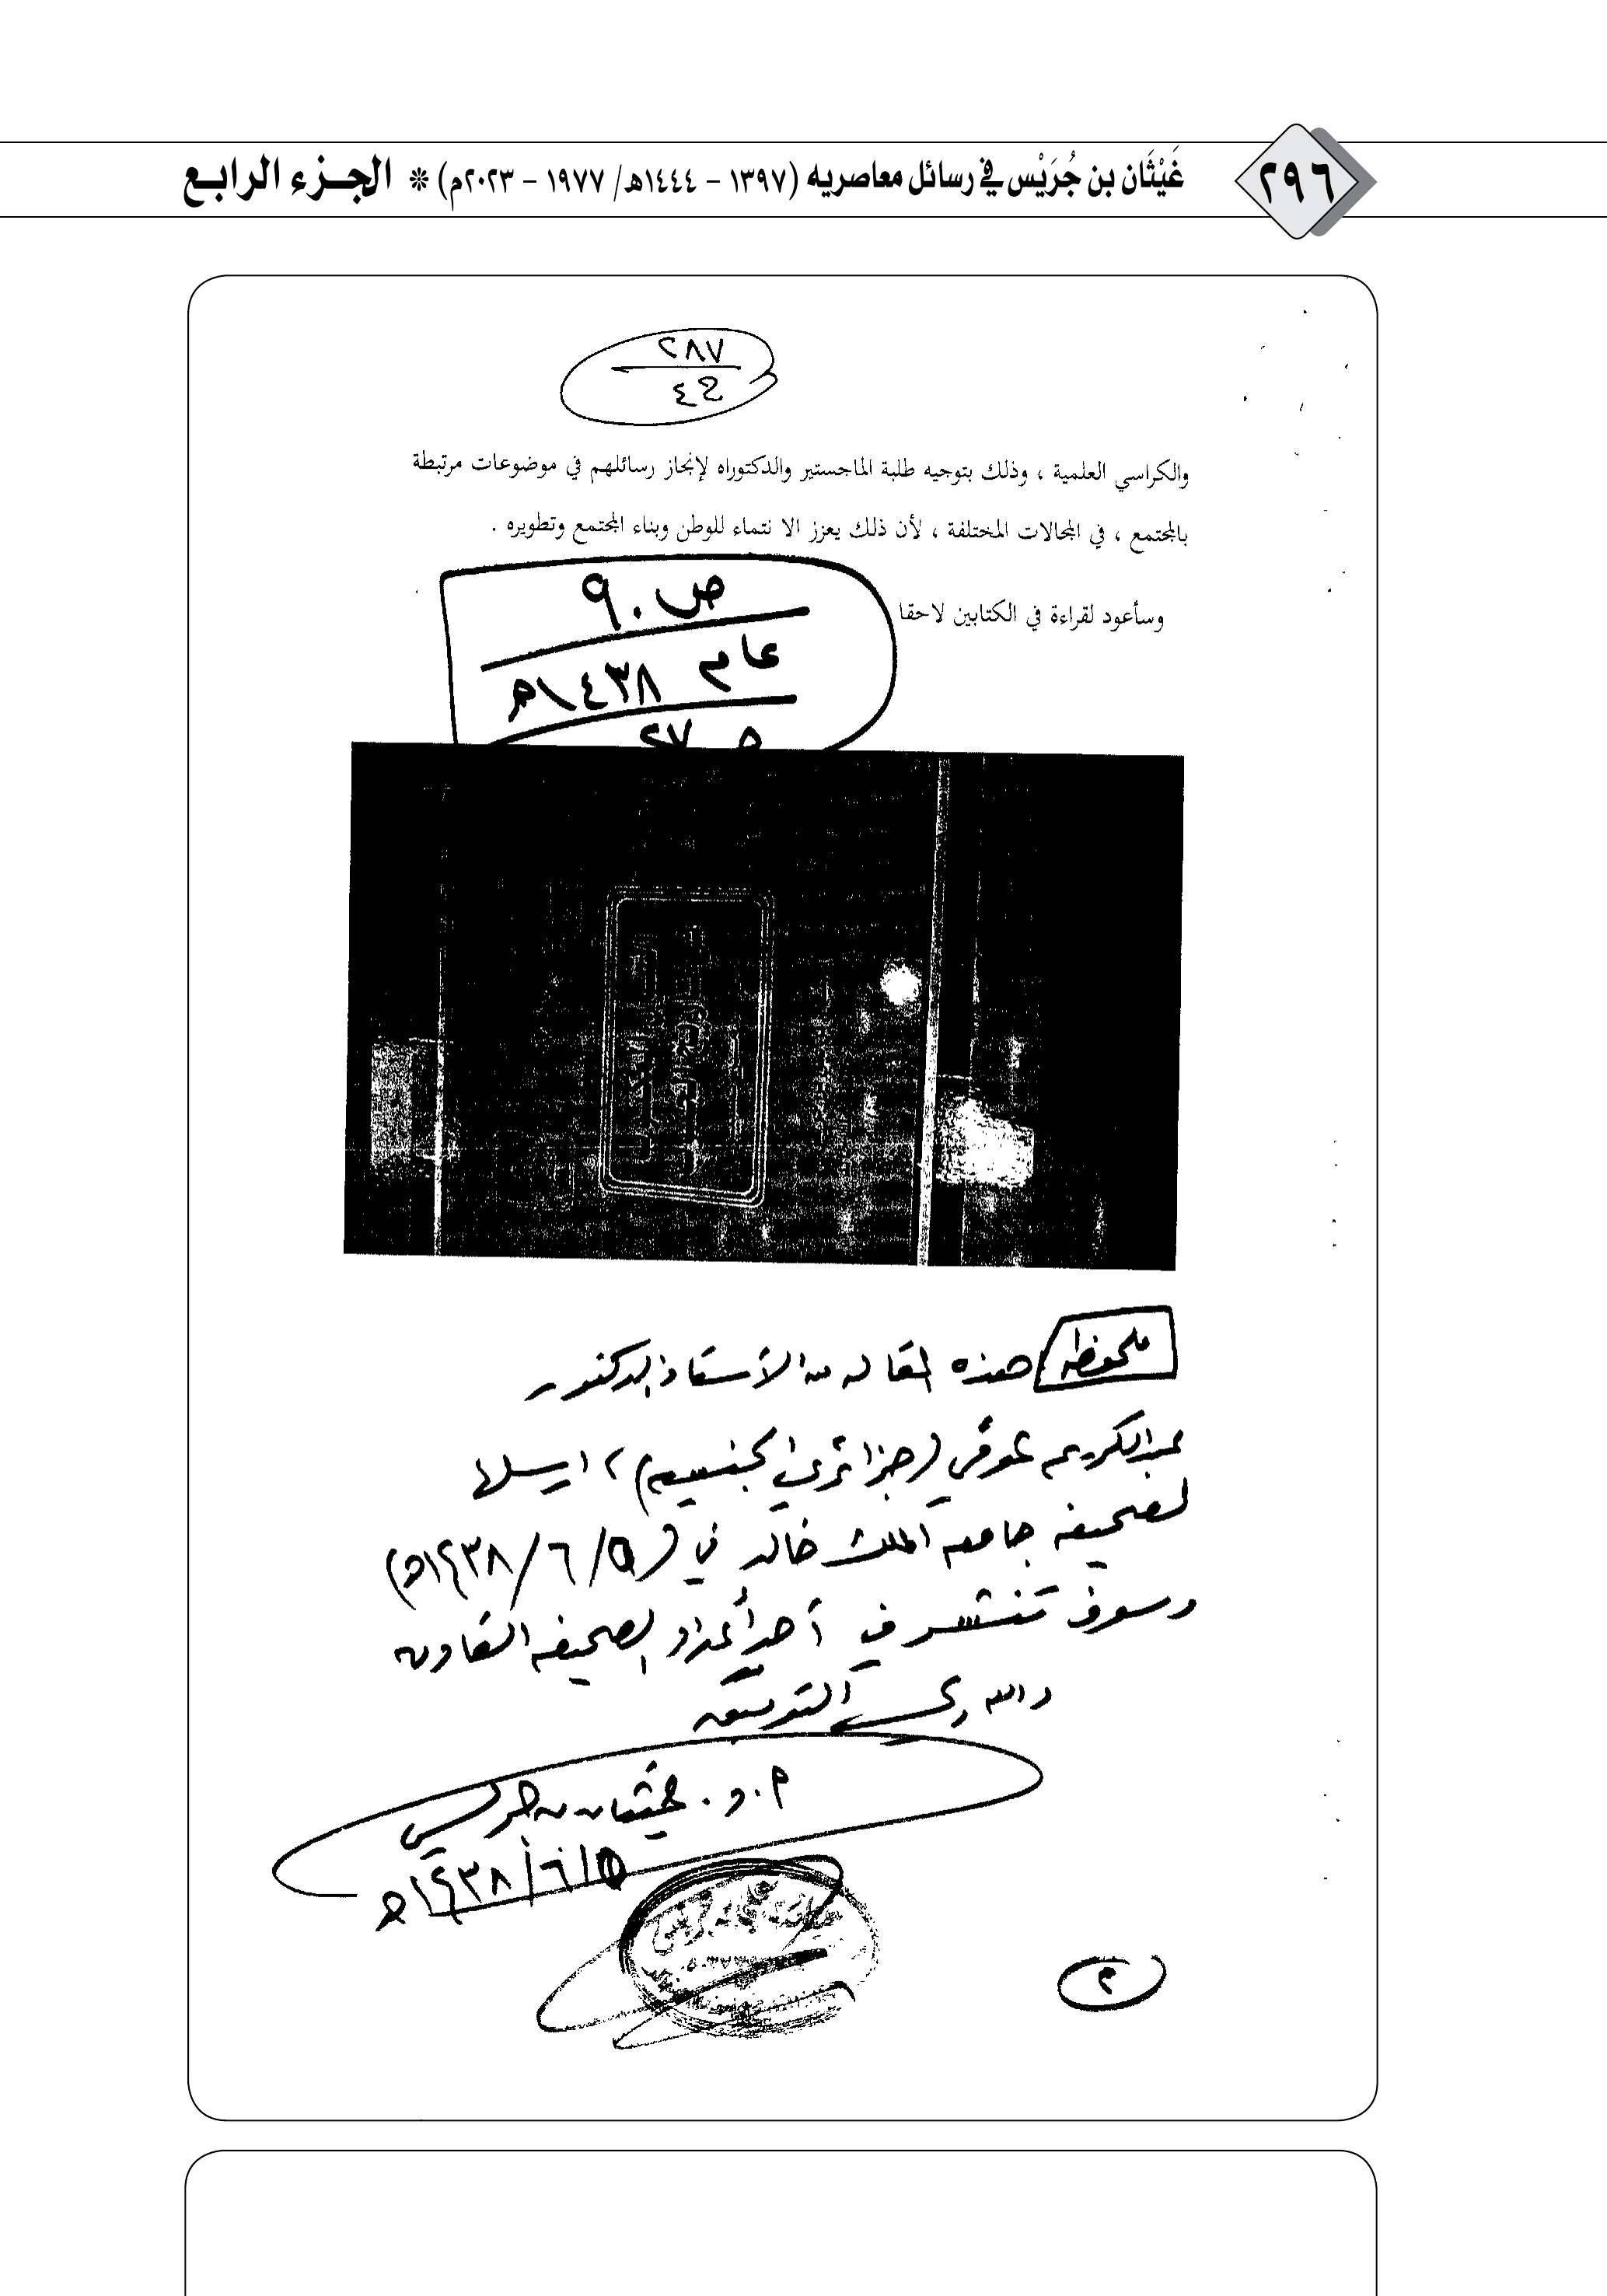 ٢٩٦
غَيْثَان بن جُرَيْس في رسائل معاصريه (١٣٩٧ - ١٤٤٤هـ/ ١٩٧٧ - ٢٠٢٣م) * الجزء الرابع
٢٨٧
والكراسي العلمية ، وذلك بتوجيه طلبة الماجستير والدكتوراه لإنجاز رسائلهم في موضوعات مرتبطة
بالمجتمع ، في المجالات المختلفة ، لأن ذلك يعزز الا نتماء للوطن وبناء المجتمع وتطويره .
وسأعود لقراءة في الكتابين لاحقا
ص.٩
عام ١٤٣٨هـ
ص ٢٧
ملحوظه هذه المقاله من الأستاذ الدكتور
عبدالكريم عوفي (جزائري الجنسيه) ، ارسلها
لصحيفه جامعه الملك خالد في (١٤٣٨/٦/٥هـ)
وسوف تنشر في أحد أعداد الصحيفه القادمه
والله ولي التوفيق
أ.د. غيثان بن جريس
١٤٣٨/٦/٥هـ
٢